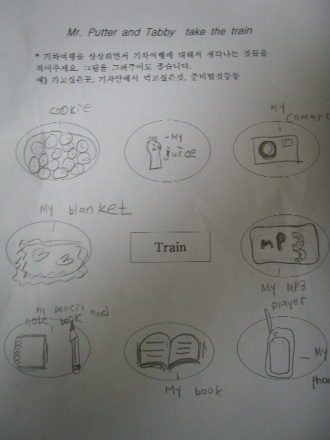 Mr. Putter and Tabby take the train
* 기차여행을 상상하면서 기차여행에 대해서 생각나는 것들을
적어주세요. 그림을 그려주어도 좋습니다.
예) 가고싶은곳, 기차안에서 먹고싶은것, 준비할것등등
cookie
MY
juice
MY
camara
My blanket
Train
MP
My MP3
player
My pencil and
note book
My book
My
phon